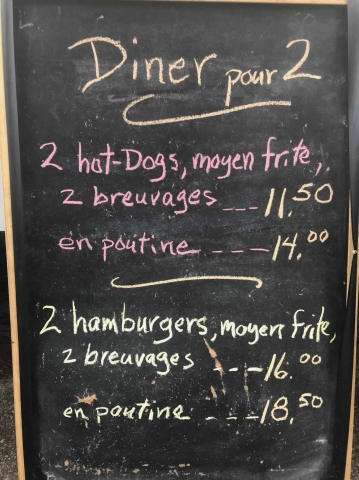 Diner pour 2
2 hot-Dogs, moyen frite,
2 breuvages ---11,50
en poutine ---14,00
2 hamburgers, moyen frite,
2 breuvages ---16.00
en poutine ---18,50